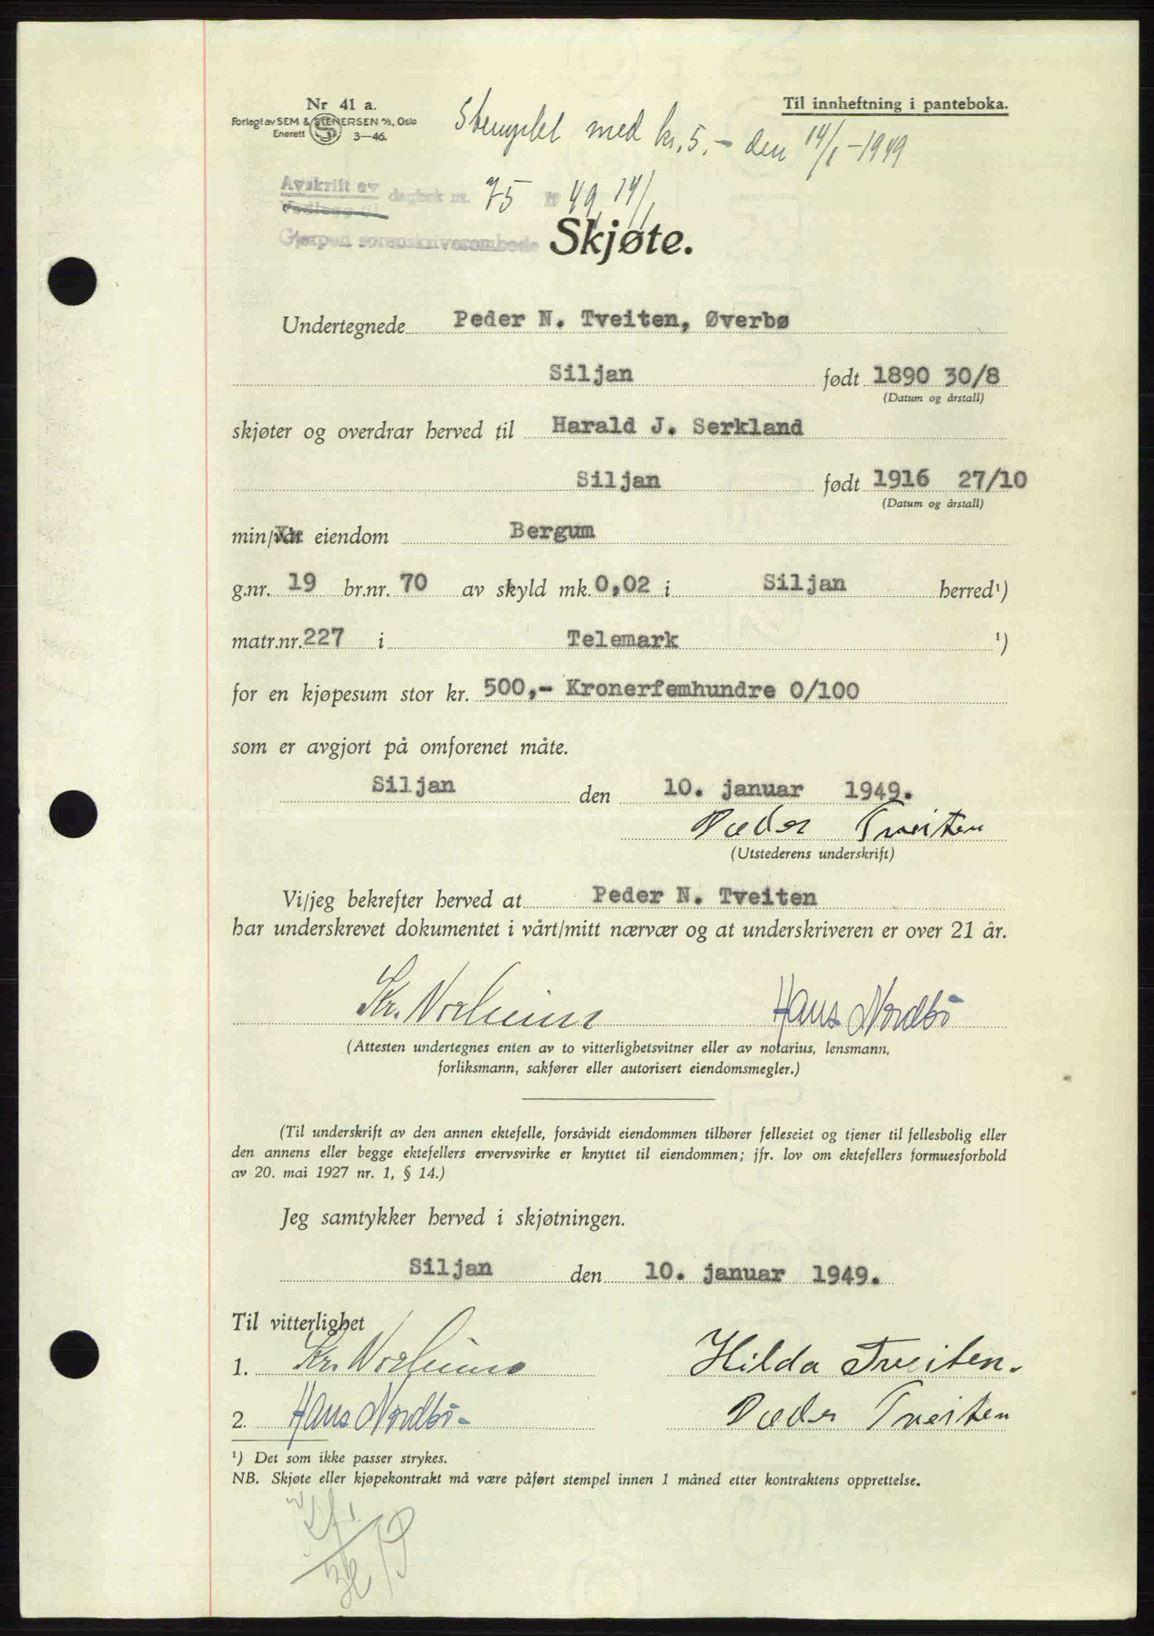 Nr 41 a.
Forlagt av SEM & STENERSEN A/S, Oslo
Enerett 3—46.
Til innheftning i panteboka.
Stemplet med kr. 5.- den 14/1-1949
Avskrift av
Vedlegg til dagbok nr. 75 49 14/1
Gjerpen sorenskriverembede
Skjøte.
Undertegnede Peder N. Tveiten, Øverbø
Siljan født 1890 30/8
(Datum og årstall)
skjøter og overdrar herved til Harald J. Serkland
Siljan født 1916 27/10
(Datum og årstall)
min/vår eiendom Bergum
g.nr. 19 br.nr. 70 av skyld mk. 0,02 i Siljan herred¹)
matr.nr. 227 i Telemark ¹)
for en kjøpesum stor kr. 500,- Kronerfemhundre 0/100
som er avgjort på omforenet måte.
Siljan den 10. januar 1949.
Peder Tveiten
(Utstederens underskrift)
Vi/jeg bekrefter herved at Peder N. Tveiten
har underskrevet dokumentet i vårt/mitt nærvær og at underskriveren er over 21 år.
Kr. Norheim Hans Nordbö
(Attesten undertegnes enten av to vitterlighetsvitner eller av notarius, lensmann,
forliksmann, sakfører eller autorisert eiendomsmegler.)
(Til underskrift av den annen ektefelle, forsåvidt eiendommen tilhører felleseiet og tjener til fellesbolig eller
den annens eller begge ektefellers ervervsvirke er knyttet til eiendommen; jfr. lov om ektefellers formuesforhold
av 20. mai 1927 nr. 1, § 14.)
Jeg samtykker herved i skjøtningen.
Siljan den 10. januar 1949.
Til vitterlighet
1. Kr. Norheim Hilda Tveiten.
2. Hans Nordbö- Peder Tveiten
¹) Det som ikke passer strykes.
NB. Skjøte eller kjøpekontrakt må være påført stempel innen 1 måned etter kontraktens opprettelse.